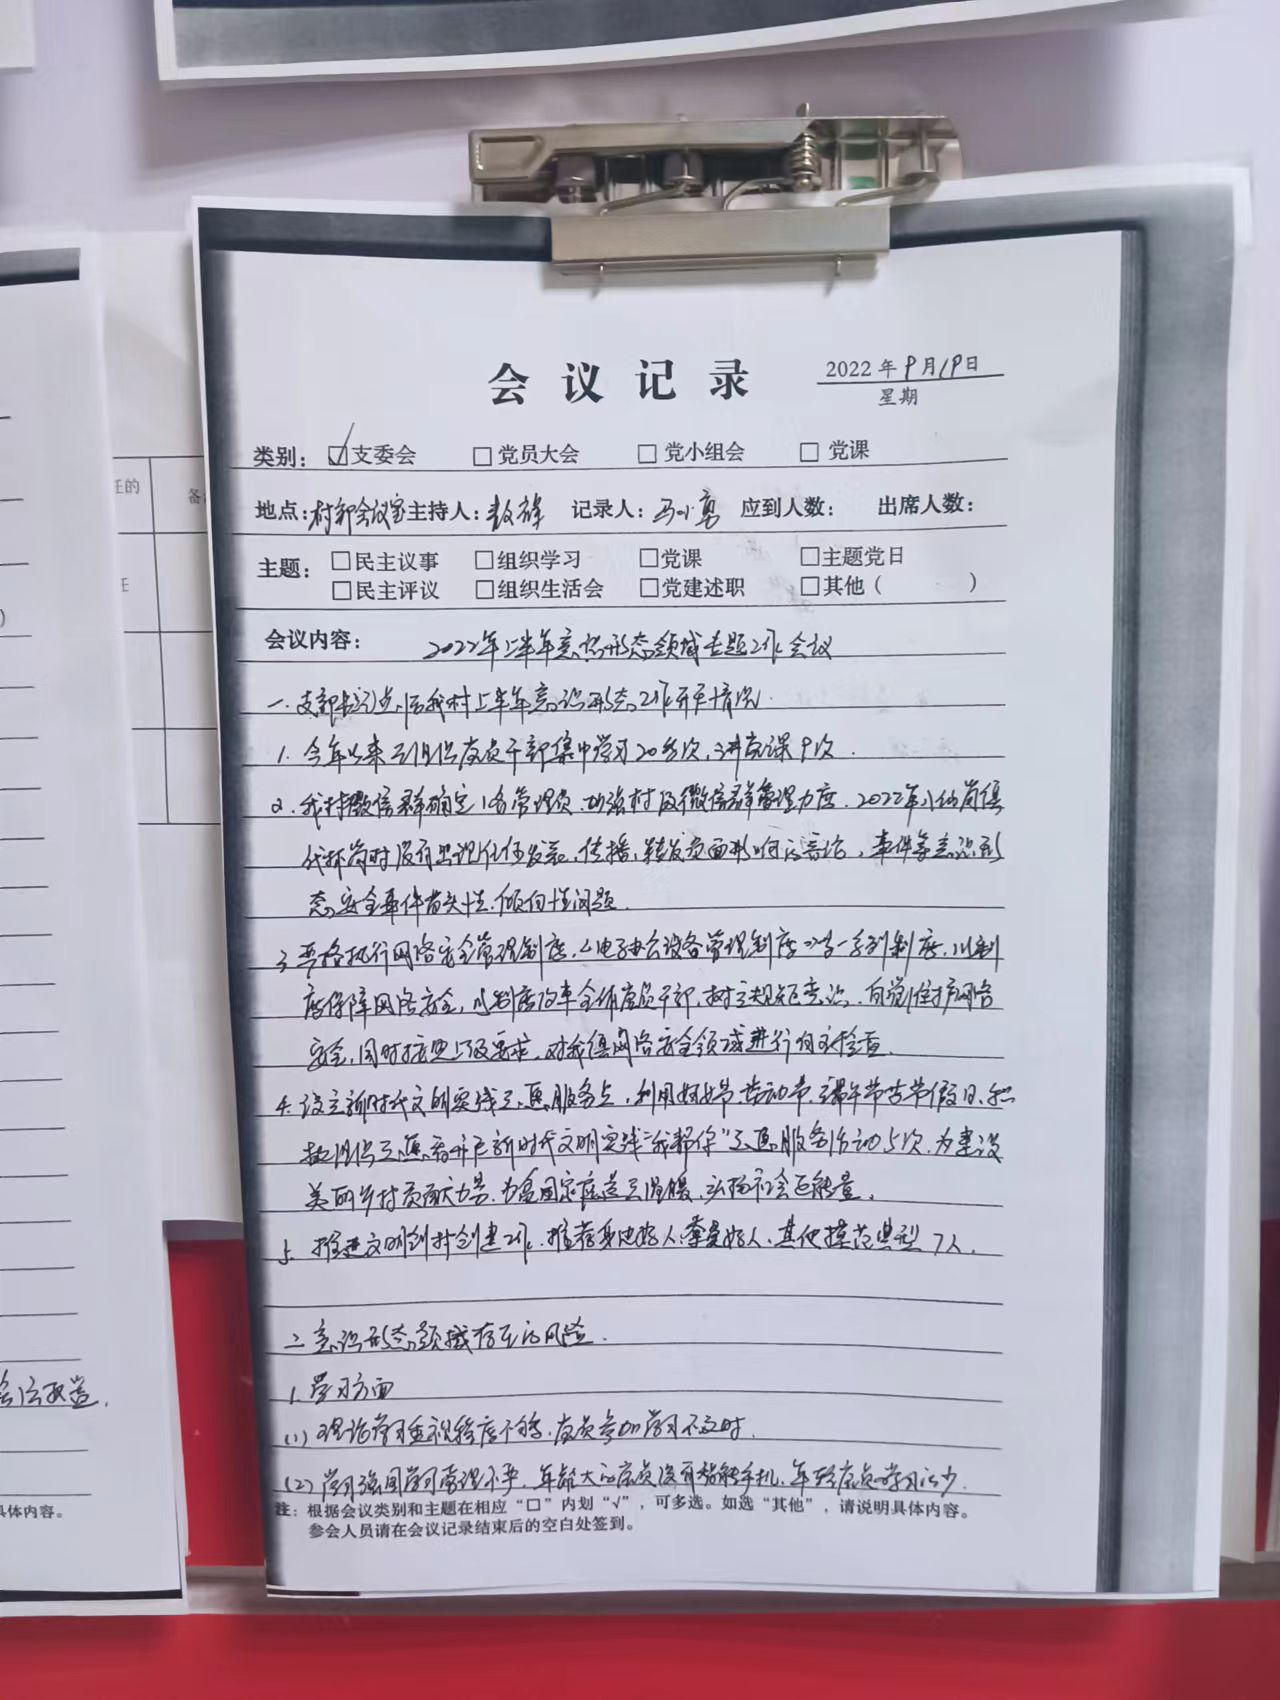 会议记录
2022年9月19日
星期
类别: ☑支委会 □党员大会 □党小组会 □党课
地点:村部会议室 主持人: 记录人:马小勇 应到人数: 出席人数:
主题: □民主议事 □组织学习 □党课 □主题党日
□民主评议 □组织生活会 □党建述职 □其他( )
会议内容: 2022年上半年意识形态领域专题工作会议
一.支部书记总结我村上半年意识形态工作开展情况.
1.今年以来已组织党员干部集中学习20多次,讲党课9次.
2.我村微信群确定1名管理员,加强村级微信群管理力度.2022年
没有出现任何发表、传播、转发负面影响的言论,事件等意识形
态安全事件苗头性.倾向性问题.
3.严格执行网络安全管理制度,《电子办公设备管理制度》等一系列制度,以制
度保障网络安全,以制度改革全体党员干部,树立规矩意识,自觉维护网络
安全,同时按照上级要求,对我村网络安全领域进行自主检查.
4.设立新时代文明实践志愿服务点,利用妇女节.劳动节.端午节等节假日.积
极组织志愿者开展新时代文明实践"我帮你"志愿服务活动5次.为建设
美丽乡村贡献力量.为 家庭送去温暖,弘扬社会正能量.
5.推进文明村创建工作.推荐身边好人.孝爱好人.其他模范典型7人.
二.意识形态领域存在的风险.
1.学习方面
(1)理论学习重视程度不够.党员参加学习不及时.
(2)学习强国学习管理不严,年龄大的党员没有智能手机,年轻党员学习的少.
注:根据会议类别和主题在相应"□"内划"√",可多选。如选"其他",请说明具体内容。
参会人员请在会议记录结束后的空白处签到。
任的
备
任
具体内容。